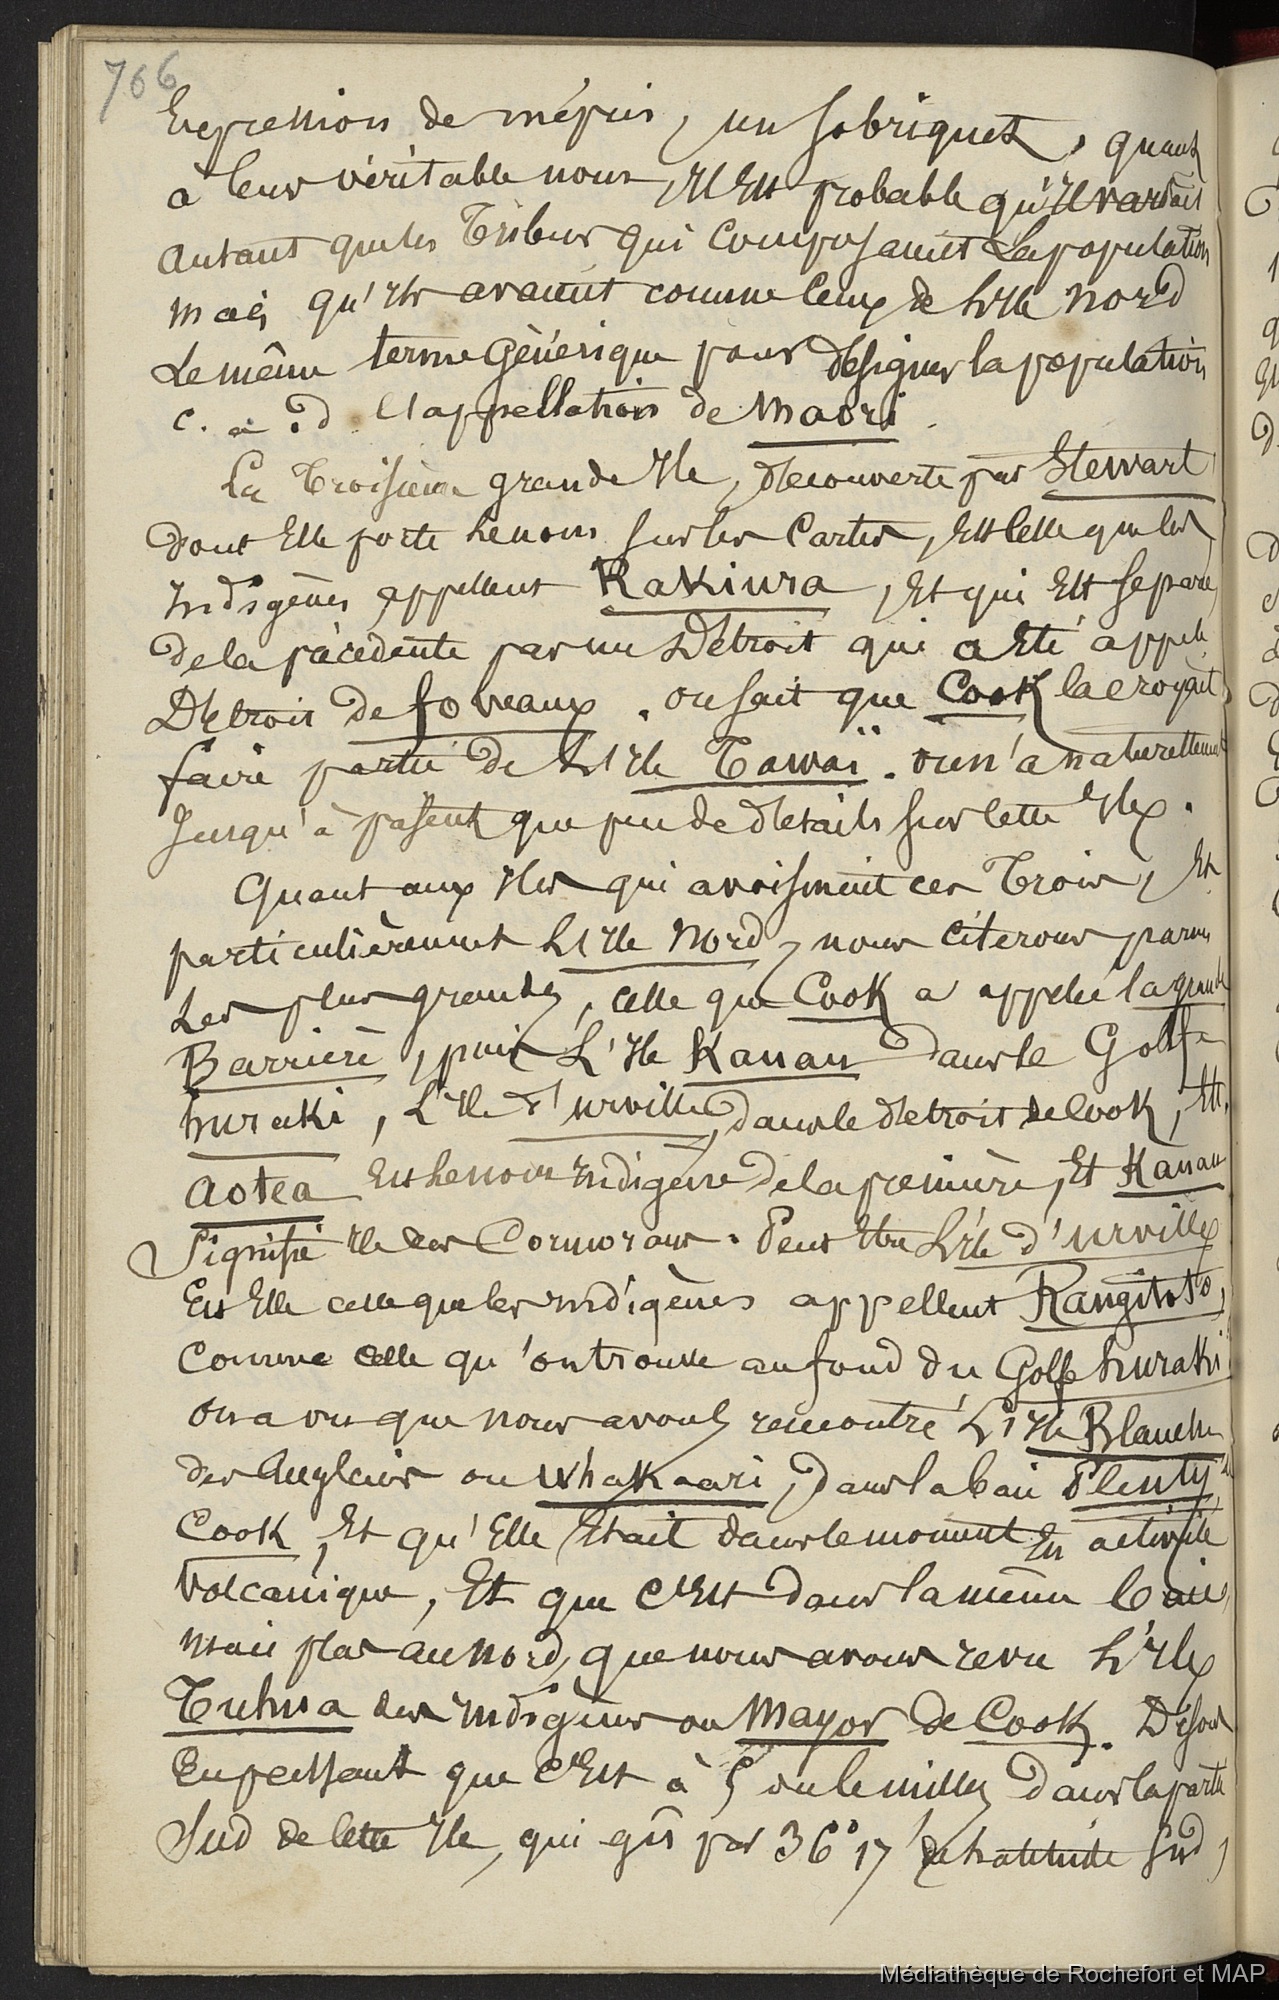 766
Expression de mépris, un sobriquet, quant
à leur véritable nom, Il Est probable qu'Il variait
autant que les Tribus qui Composaient La population
mais qu'Ils avaient comme Ceux de L'Ile Nord
Le même terme Générique pour désigner la population
c. à. d l'appellation de Maori.
La Troisième grande Ile, découverte par Stewart
dont Elle porte le nom sur les Cartes, Est Celle que les
Indigènes appellent Rakiura, Et qui Est separé
de la précédente par un Détroit qui a Eté appelé
Détroit de foveaux. on sait que Cook la croyait
faire partie de L'Ile Tawaï. on n'a naturellement
Jusqu'à présent que peu de détails sur cette Ile.
Quant aux Iles qui avoisinent ces Trois, Et
particulièrement L'Ile Nord, nous Citerons parmi
Les plus grandes, Celle que Cook a appelée la grande
Barrière, puis L'Ile Kauau dans le Golfe
huraki, L'Ile d'urville, dans le détroit de Cook, Etc.
aotea Est le nom Indigène de la première, Et Kauau
Signifie Ile des Cormorans. Peut Etre L'Ile d'urville
Est Elle celle que les Indigènes appellent Rangitoto,
Comme celle qu'on trouve au fond du Golfe huraki
on a vu que nous avons rencontré L'Ile Blanche
des Anglais ou Whakaari, dans la baie Plenty
Cook, Et qu'Elle Etait dans le moment En activité
Volcanique, Et que C'Est dans la même baie,
mais plus au Nord, que nous avons revu L'Ile
Tuhua des Indigènes ou Mayor de Cook. Disons
En passant que C'Est à 5 ou le milles dans la partie
Sud de cette Ile, qui gît par 36° 17' de Latitude Sud,
Médiathèque de Rochefort et MAP